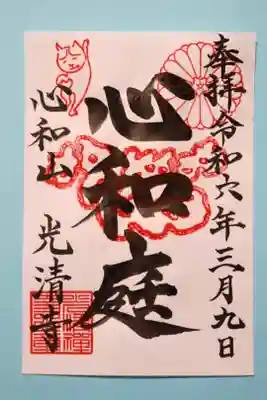 奉拝令和六年三月九日
心和庭
心和山
光清寺